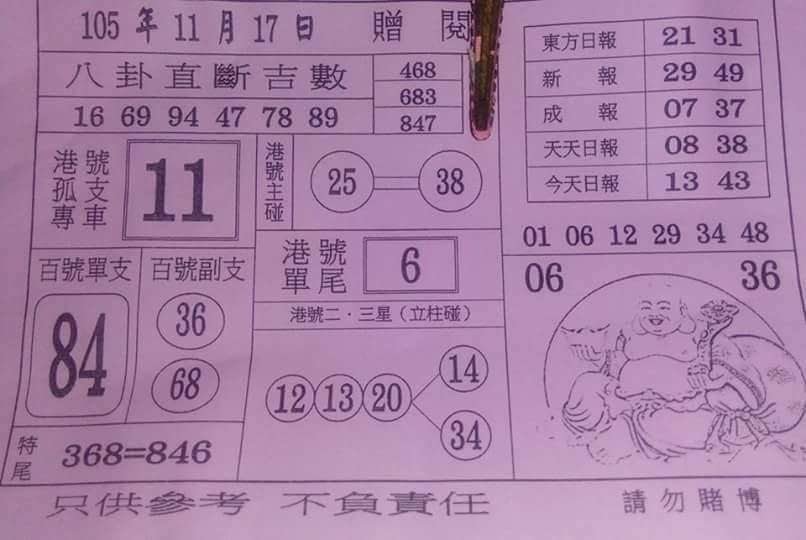 105 年 11 月 17 日 贈 閱
八卦直斷吉數
16 69 94 47 78 89
468
683
847
港號孤支專車
11
港號主碰
25 38
百號單支
84
百號副支
36
68
港號單尾
6
港號二·三星（立柱碰）
12 13 20
14
34
特尾
368=846
東方日報 21 31
新 報 29 49
成 報 07 37
天天日報 08 38
今天日報 13 43
01 06 12 29 34 48
06 36
只供參考 不負責任 請勿賭博